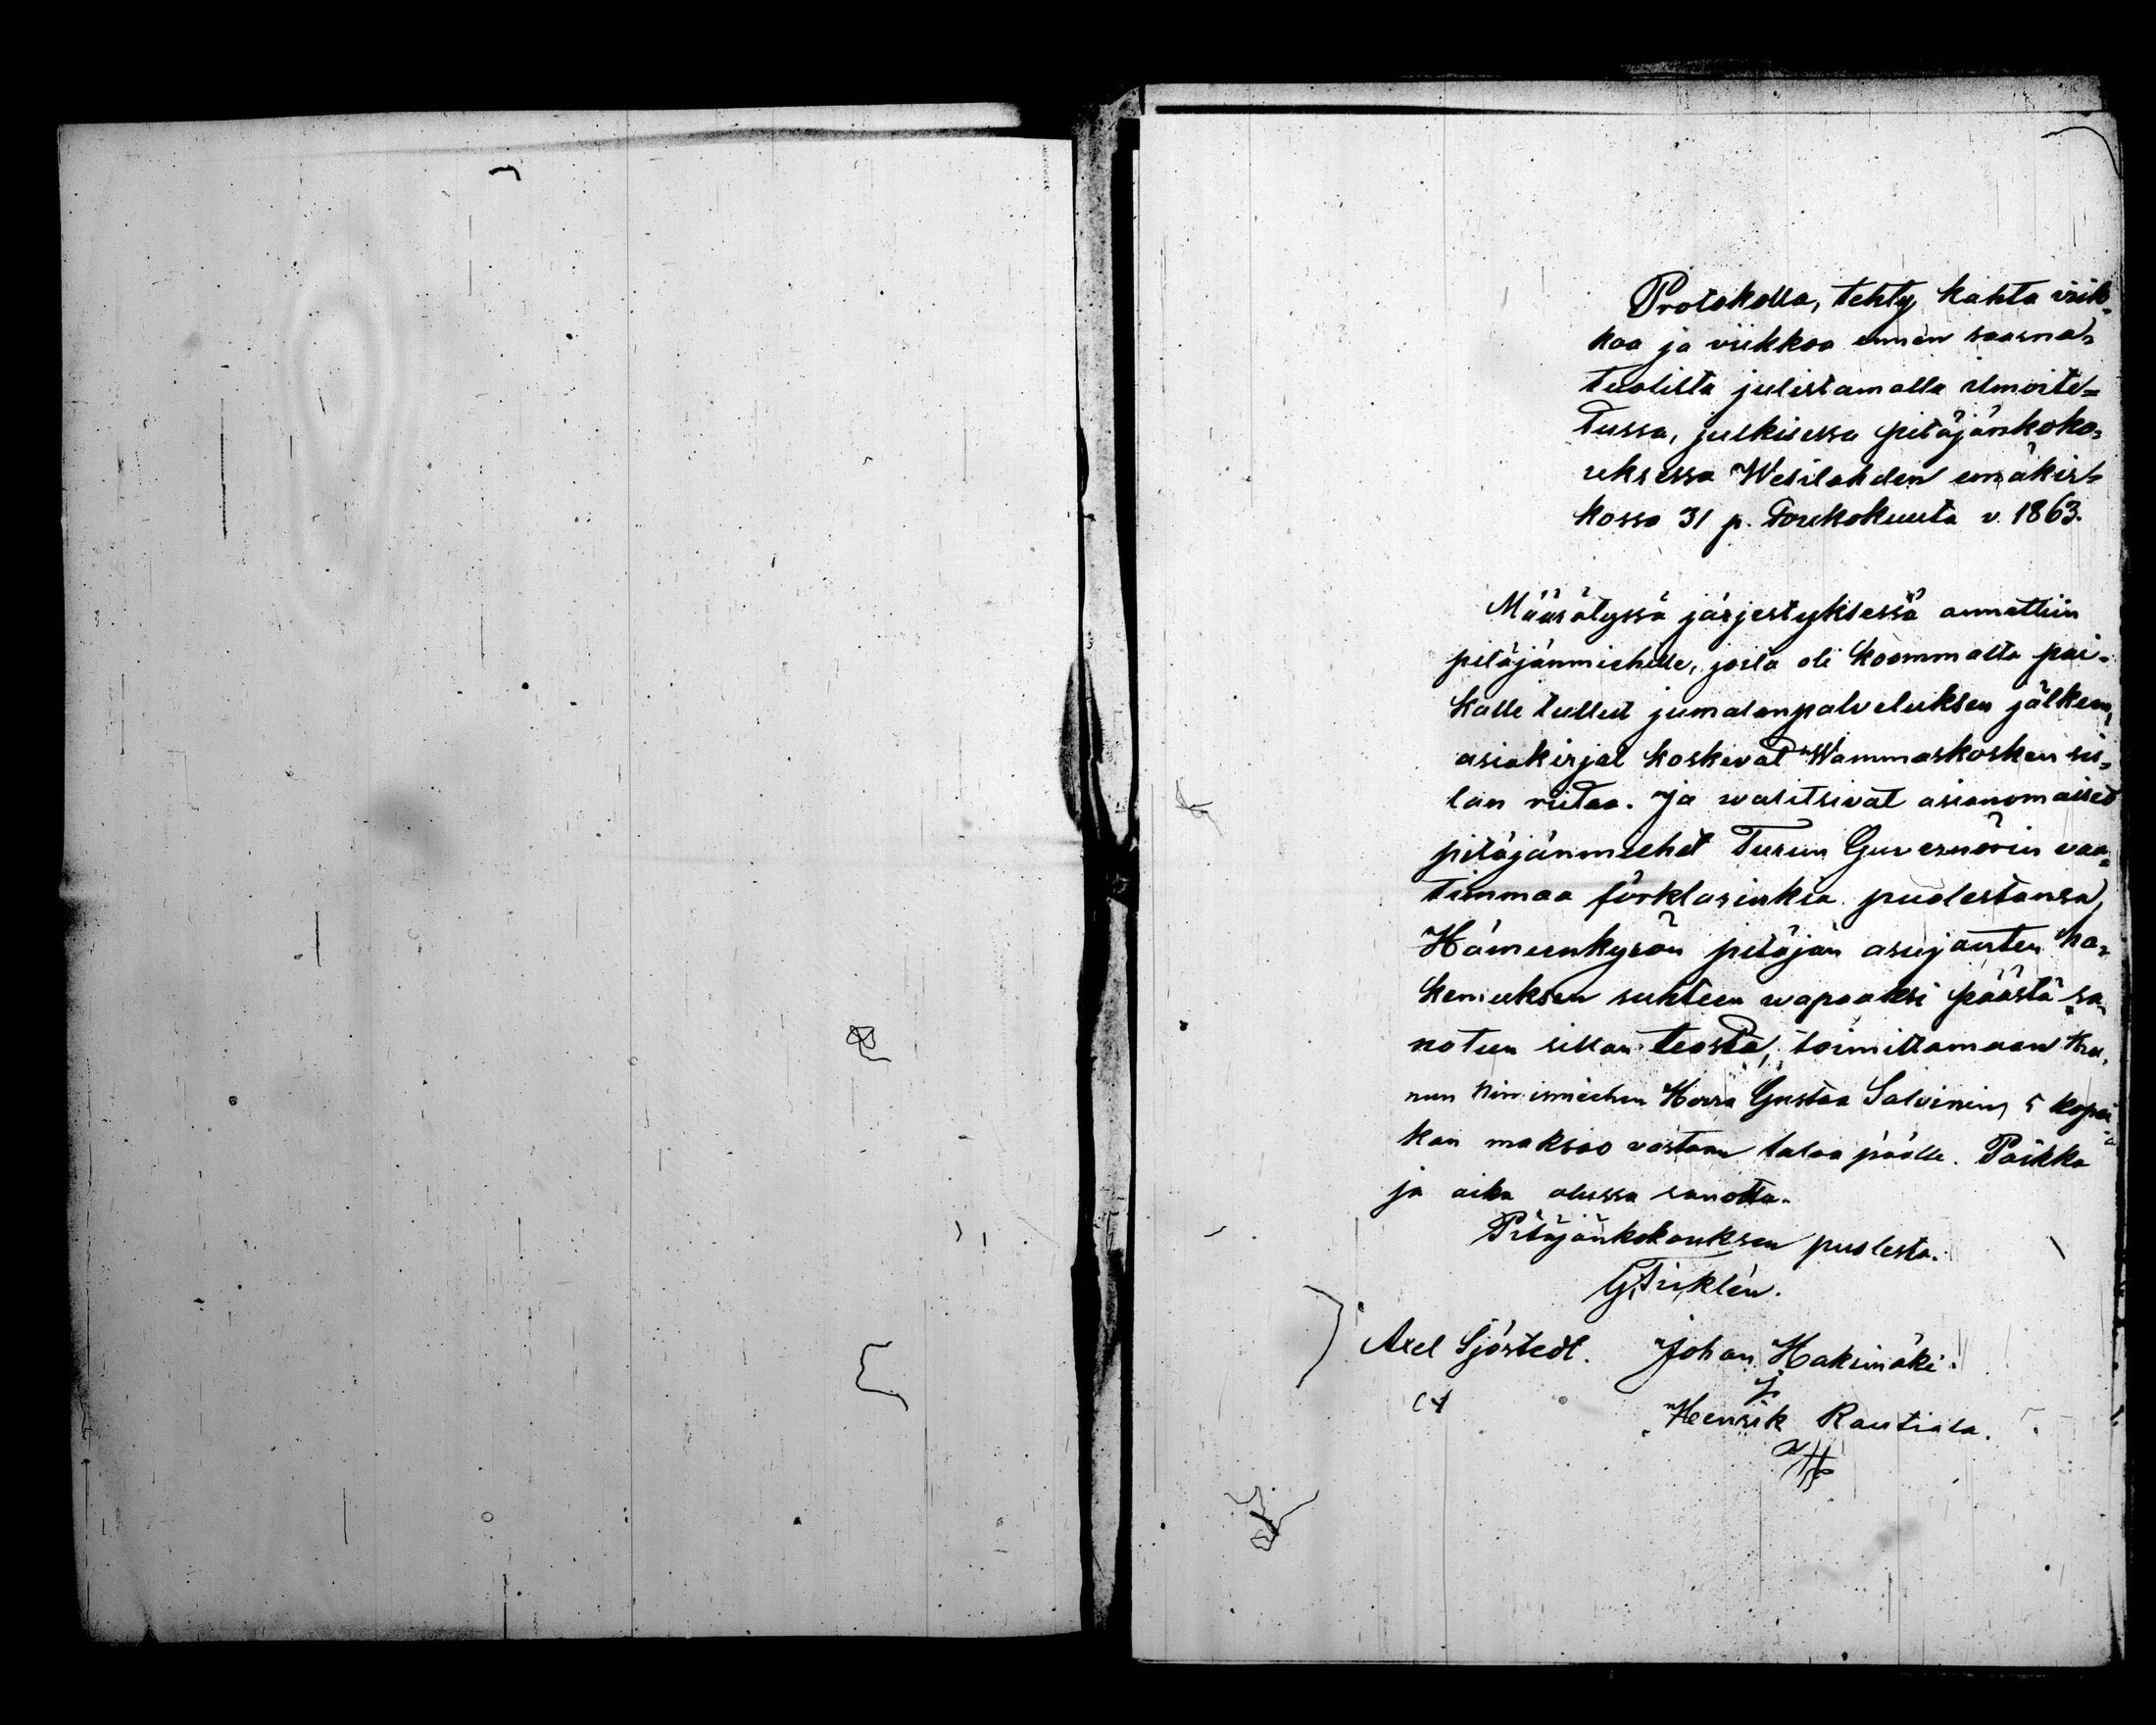 Protokolla, tehty kahta viik-
koa ja viikkoa ennen saarna-
tuolista julistamalla ilmoite-
tussa, julkisessa pitäjänkoko-
uksessa Wesilahden emäkir-
kossa 31 p. Toukokuuta v. 1863.
Määrätyssä järjestyksessä annettiin
pitäjänmiehille, joita oli koommalta pai-
kalle tullut jumalanpalveluksen jälkeen,
asiakirjat koskevat Wammaskosken sil-
lan riitaa. Ja walitsivat asianomaiset
pitäjänmiehet Turun Guvernörin vaa-
timmaa förklarinksia puolestansa,
Hämeenkyrön pitäjän asujanten ha-
kemuksen suhteen wapaaksi päästä sa-
notun sillan teosta, toimittamaan Kru-
nun Nimismiehen Herra Gustaa Salvinin, 5 kopei-
kan maksoo vastaan taloa päälle. Paikka
ja aika alussa sanottu.
Pitäjänkokouksen puolesta.
G. Ticklén.
Axel Sjöstedt. Johan Hakimäki.
Henrik Rautiala.